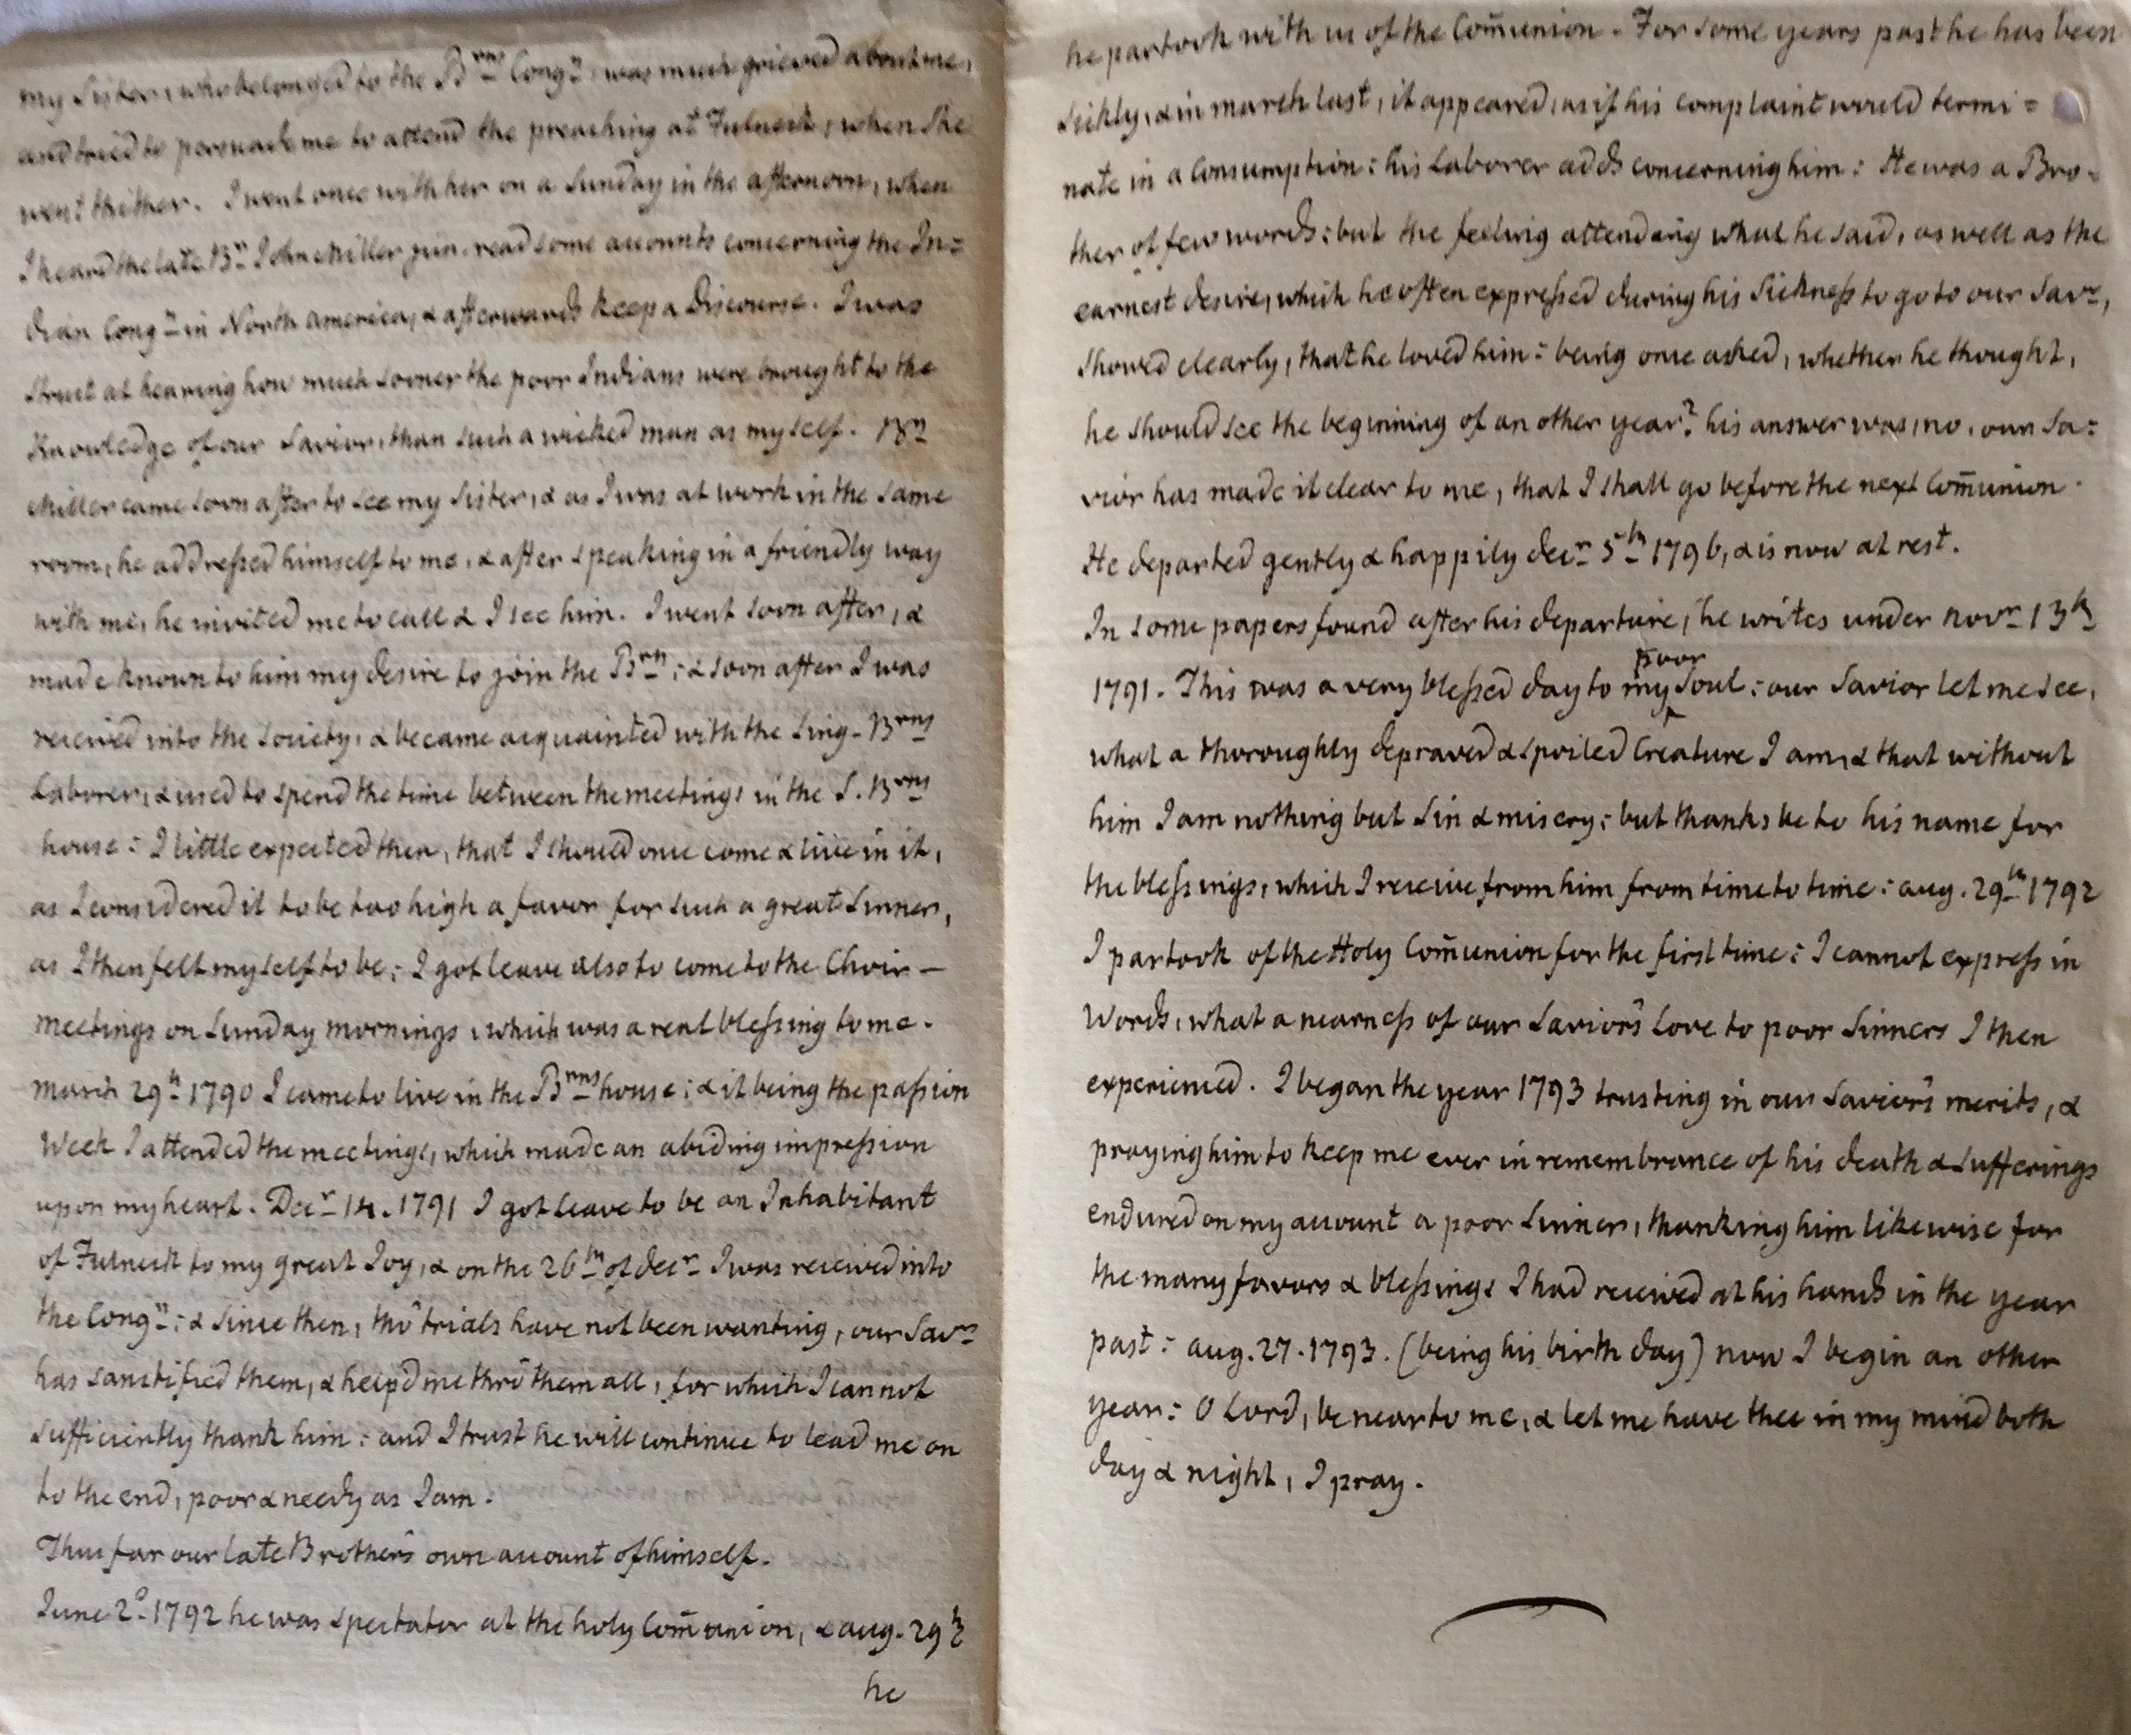 my Sister, who belonged to the Brns Congn was much grieved about me,
and tried to persuade me to attend the preaching at Fulneck, when she
went thither. I went once with her on a Sunday in the afternoon, when
I heard the late Br. John Miller jun. read some accounts concerning the In=
dian Congn in North america, & afterwards keep a Discourse. I was
struct at hearing how much sooner the poor Indians were brought to the
Knowledge of our Savior, than such a wicked man as myself. Br.
Miller came soon after to see my Sister, & as I was at work in the same
room, he addressed himself to me, & after speaking in a friendly way
with me, he invited me to call & I see him. I went soon after, &
made known to him my desire to join the Brn: & soon after I was
received into the Society, & became acquainted with the Sing. Brns
Laborer, & used to spend the time between the meetings in the S. Brns
house: I little expected then, that I should once come & live in it,
as I considered it to be too high a favor for such a great Sinner,
as I then felt myself to be: I got leave also to come to the Choir —
meetings on Sunday mornings, which was a real blessing to me.
March 29th 1790 I came to live in the Brns house: & it being the passion
Week I attended the meetings, which made an abiding impression
upon my heart. Decr 14. 1791 I got leave to be an Inhabitant
of Fulneck to my great Joy, & on the 26th of decr I was received into
the Congn: & since then, tho' trials have not been wanting, our Savr
has sanctified them, & help'd me thro' them all, for which I cannot
sufficiently thank him: and I trust he will continue to lead me on
to the end, poor & needy as I am.
Thus far our late Brother's own account of himself.
June 2d 1792 he was spectator at the holy Com̄union, & aug. 29th
he
he partook with us of the Com̄union. For some years past he has been
sickly, & in march last, it appeared, as if his complaint would termi=
nate in a Consumption: his Laborer adds concerning him: He was a Bro=
ther of few words: but the feeling attending what he said, as well as the
earnest desire, which he often expressed during his Sickness to go to our Savr,
showed clearly, that he loved him: being once asked, whether he thought,
he should see the beginning of an other year? his answer was, no, our Sa=
vior has made it clear to me, that I shall go before the next Com̄union.
He departed gently & happily decr 5th 1796, & is now at rest.
In some papers found after his departure, he writes under novr 13th
1791. This was a very blessed day to my poor Soul: our Savior let me see,
what a thoroughly depraved & spoiled Creature I am, & that without
him I am nothing but Sin & misery: but thanks be to his name for
the blessings, which I receive from him from time to time: aug. 29th 1792
I partook of the Holy Com̄union for the first time: I cannot express in
Words, what a nearness of our Savior's Love to poor Sinners I then
experienced. I began the year 1793 trusting in our Savior's merits, &
praying him to keep me ever in remembrance of his death & sufferings
endured on my account a poor Sinner, thanking him likewise for
the many favors & blessings I had received at his hands in the year
past: aug. 27. 1793. (being his birth day) now I begin an other
year: O Lord, be near to me, & let me have thee in my mind both
day & night, I pray.